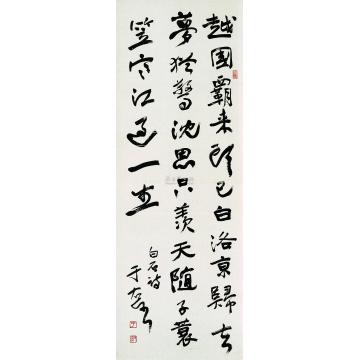 越國霸來頭已白洛京歸後
夢猶驚沈思只羨天隨子蓑
笠寒江過一生
白石詩
于右任